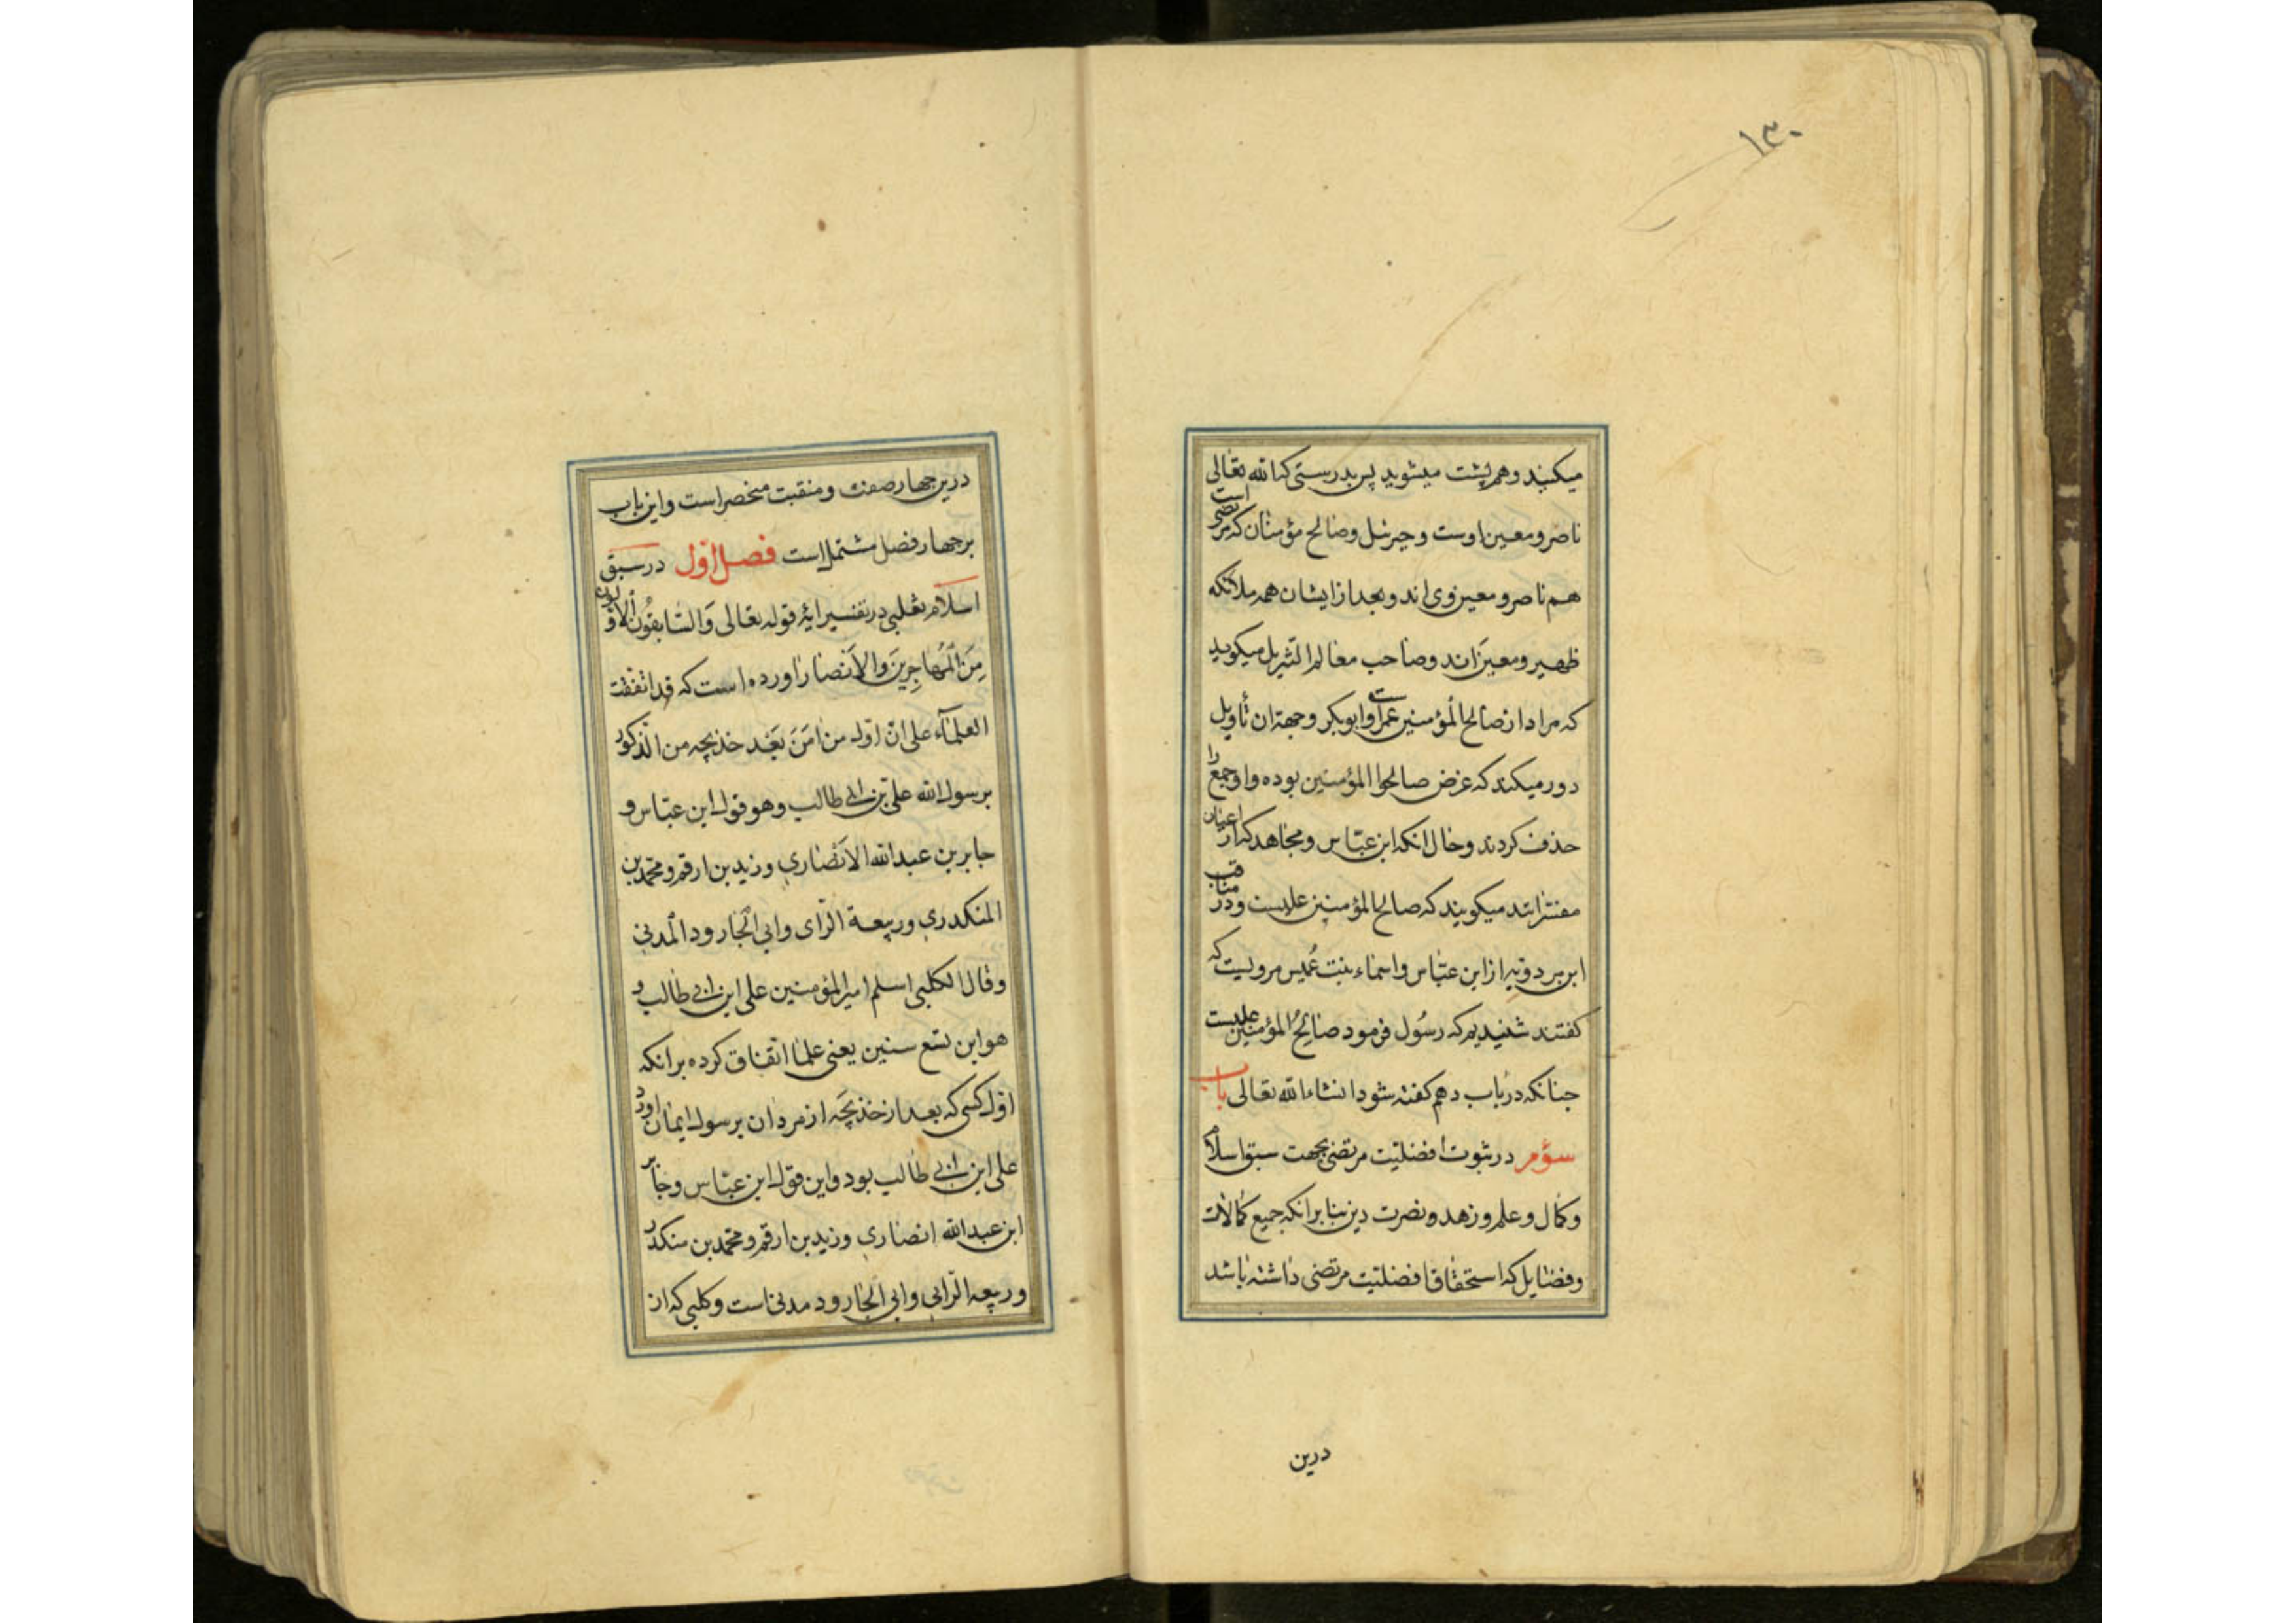 ۱۳۰
میکنید و هم پشت میشوید پس بدرستی که الله تعالی
ناصر و معین اوست و جبرئیل و صالح مؤمنان که مرتضی است
هم ناصر و معین وی اند و بعد از ایشان همه ملائکه
ظهیر و معین اند و صاحب معالم التنزیل میکوید
که مراد از صالح المؤمنین عمر است و ابوبکر و جهة ان تأویل
دور میکند که غرض صالحوا المؤمنین بوده و او جمع را
حذف کردند و حال انکه ابن عباس و مجاهد که از اعیان
مفسرانند میکویند که صالح المؤمنین علیست و در مناقب
ابن مردویه از ابن عباس و اسماء بنت عُمیس مرویست که
کفتند شنیدیم که رسُول فرمود صَالِحُ المؤمنین علیست
جنانکه در باب دهم کفته شود انشاء الله تعالی باب
سؤم در ثبوت افضلیت مرتضی بجهت سبق اسلام
و کمال و علم و زهد و نصرت دین بنا بر انکه جمیع کمالات
و فضایل که استحقاق افضلیت مرتضی داشته باشد
درین
درین جهار صفت و منقبت منحصر است و این باب
بر جهار فصل مشتمل است فصل اول در سبق
اسلام ثعلبی در تفسیر ایهٔ قوله تعالی وَالسَّابِقُونَ الْاَوَّلُونَ
مِنَ الْمُهَاجِرِینَ وَالاَنصَار اورده است که قد اتفقت
العلمآء علی انّ اوّل من امَنَ بَعْد خدیجه من الذّکور
برسول الله علیّ بن ابی طالب و هو قول ابن عبّاس و
جابر بن عبدالله الانصاری و زید بن ارقم و محمّد بن
المنکدری و ربیعة الرّای و ابی الجارود المدنی
و قال الکلبی اسلم امیر المؤمنین علی ابن ابی طالب و
هو ابن تسع سنین یعنی علما اتفاق کرده بر انکه
اوّل کسی که بعد از خدیجَه از مردان برسول ایمان اورد
علی ابن ابی طالب بود و این قول ابن عبّاس و جابر
ابن عبدالله انصاری و زید بن ارقم و محمّد بن منکدر
و ربیعه الرّایی و ابی الجارود مدنی است و کلبی که ان